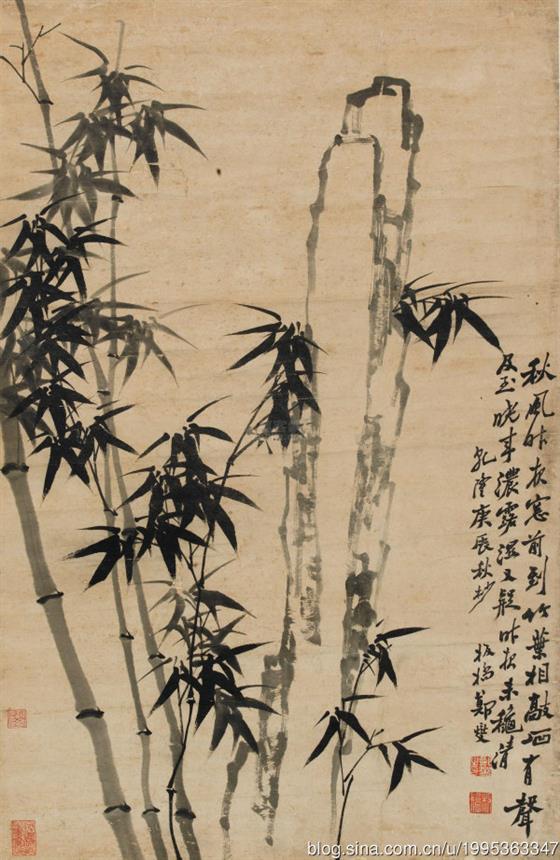 秋風昨夜窓前到竹葉相敲石有聲
及至曉來濃露濕又疑昨夜未穐清
乾隆庚辰秋杪
板橋鄭燮
blog.sina.com.cn/u/1995363347